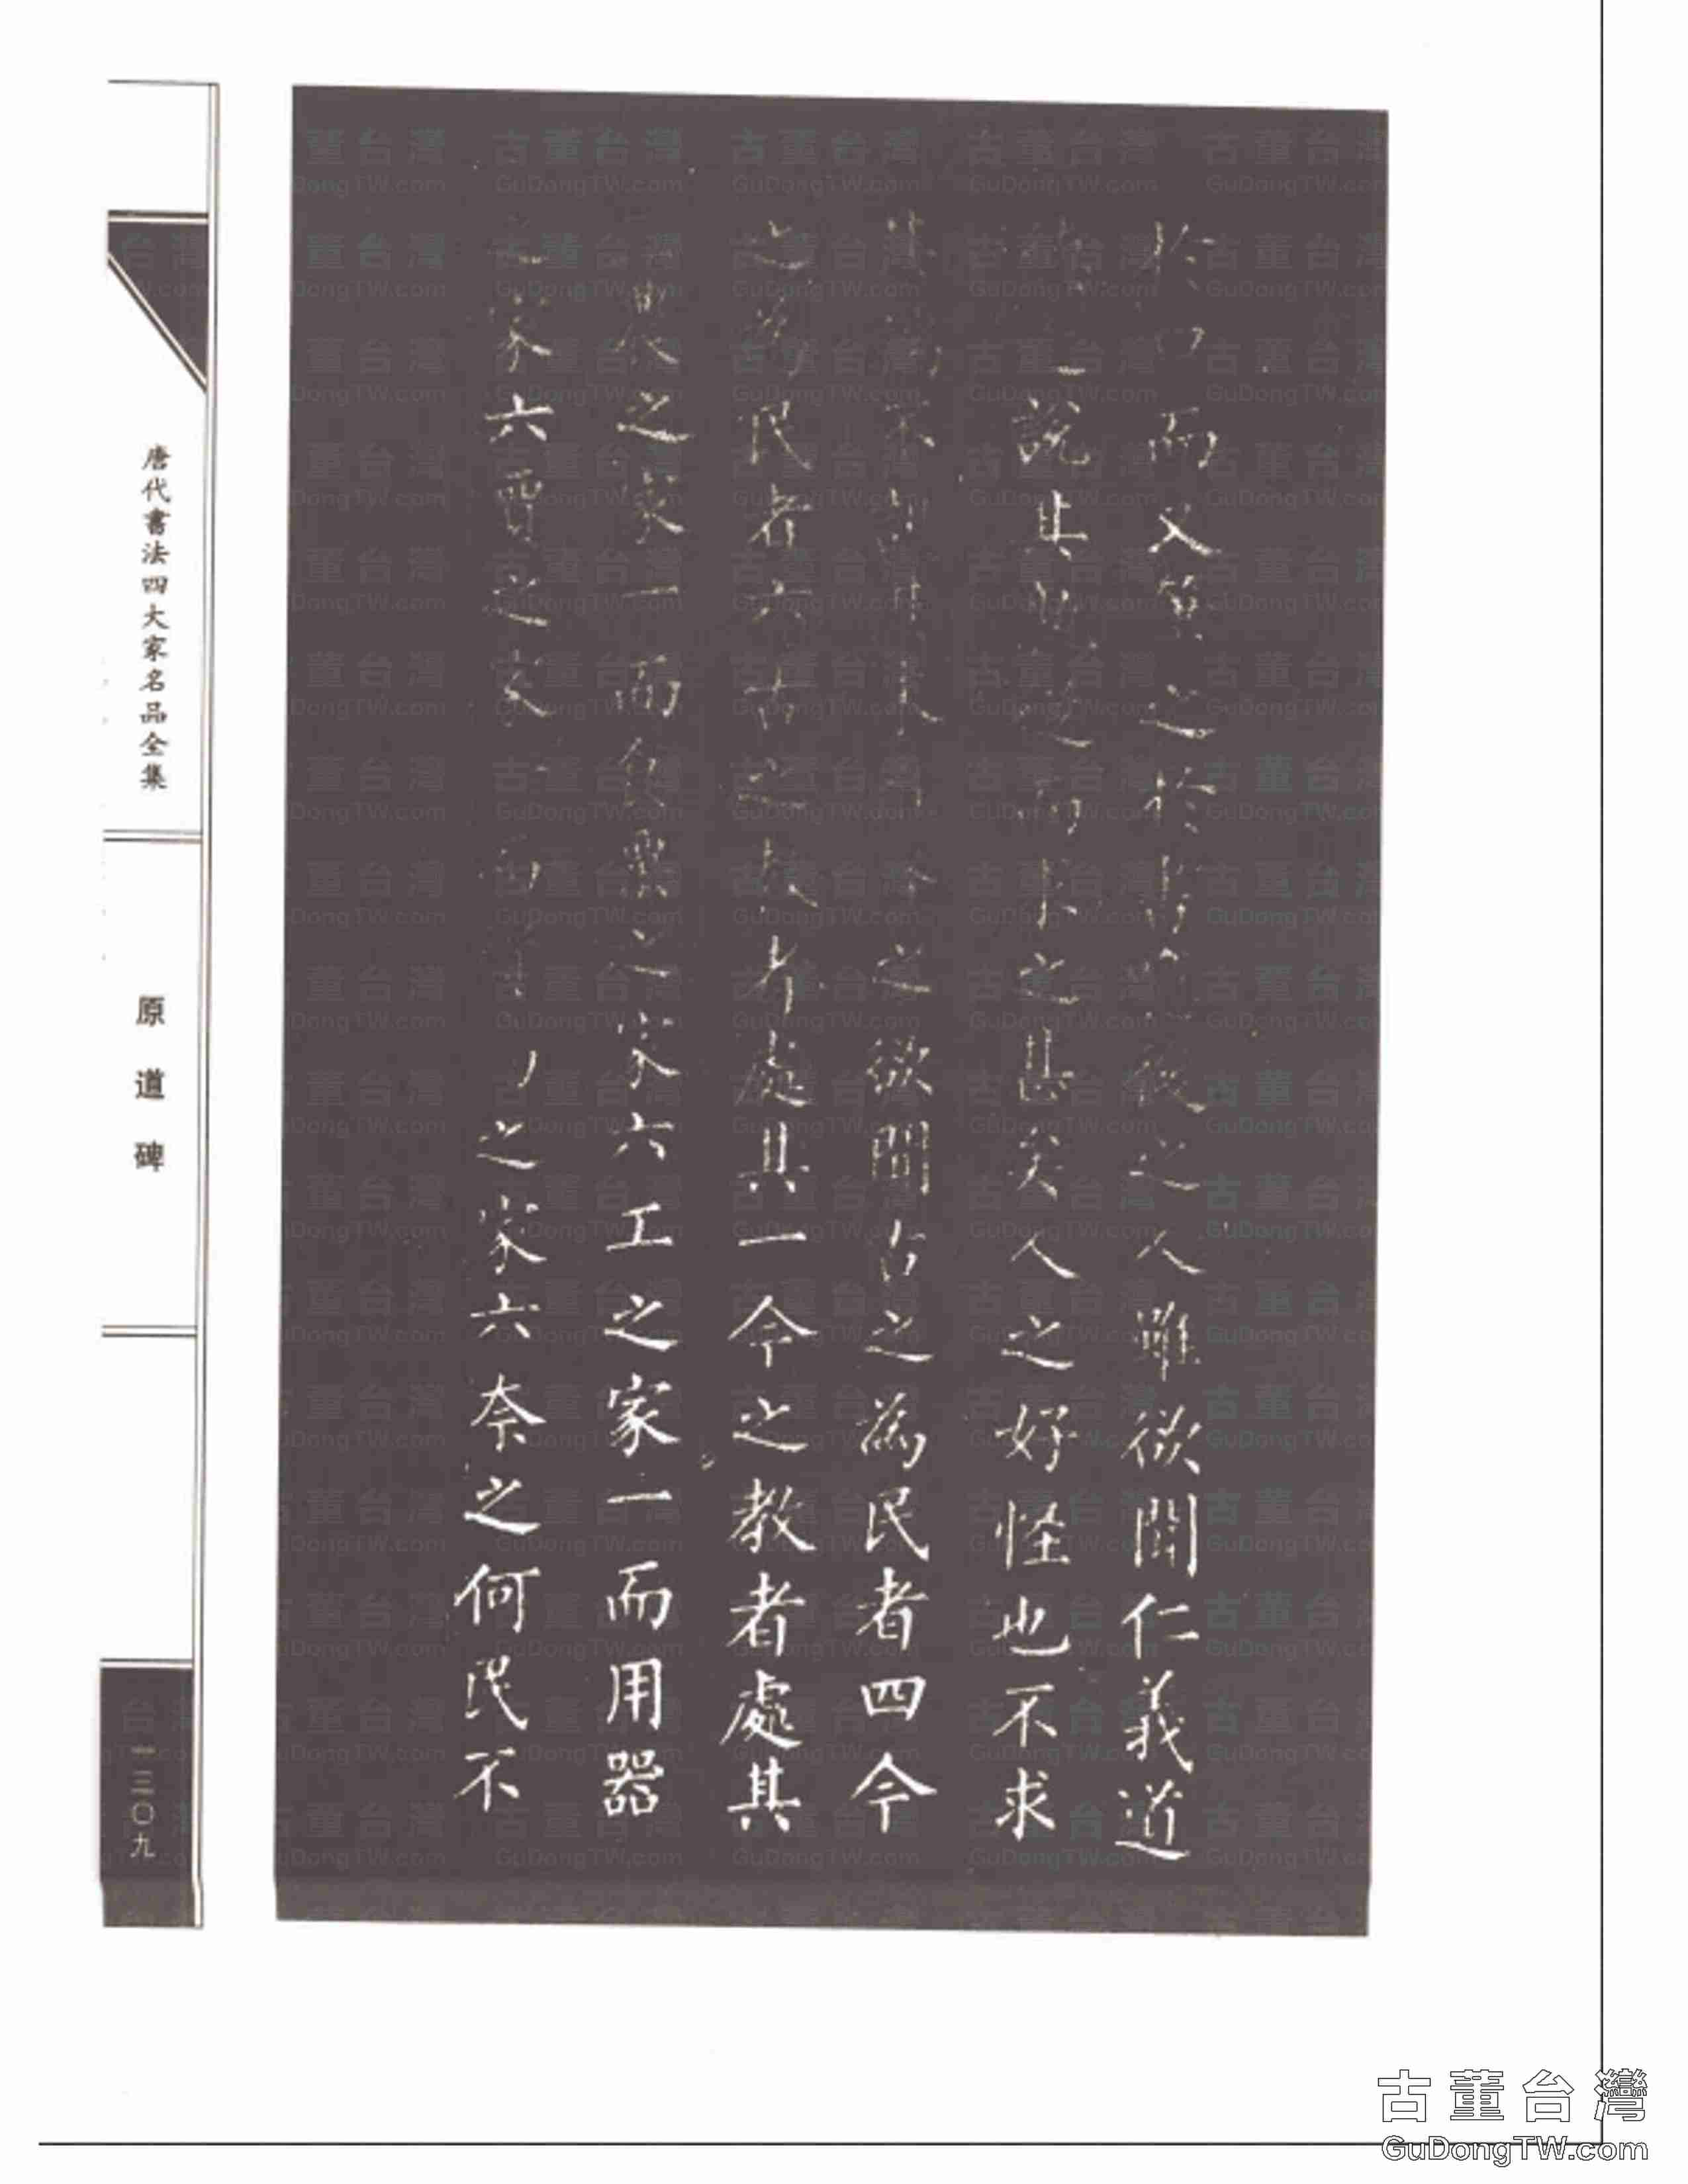 於口而又筆之於書噫後之人雖欲聞仁義道
一說其孰從而求之甚矣人之好怪也不求
不訊其末之欲聞古之為民者四今
之為民者六古之教者處其一今之教者處其
農之家一而食粟之家六工之家一而用器
之家六賈之家一而之家六奈之何民不
唐代書法四大家名品全集
原道碑
一三〇九
古董台灣
GuDongTW.com